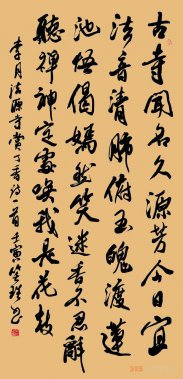 古寺闻名久源芳今日宜
法音清肺俯玉魄渡莲
池悟偈嫣然笑迷香不忍辞
聽禅神定處唤我是花枝
李月法源寺赏丁香诗一首壬寅